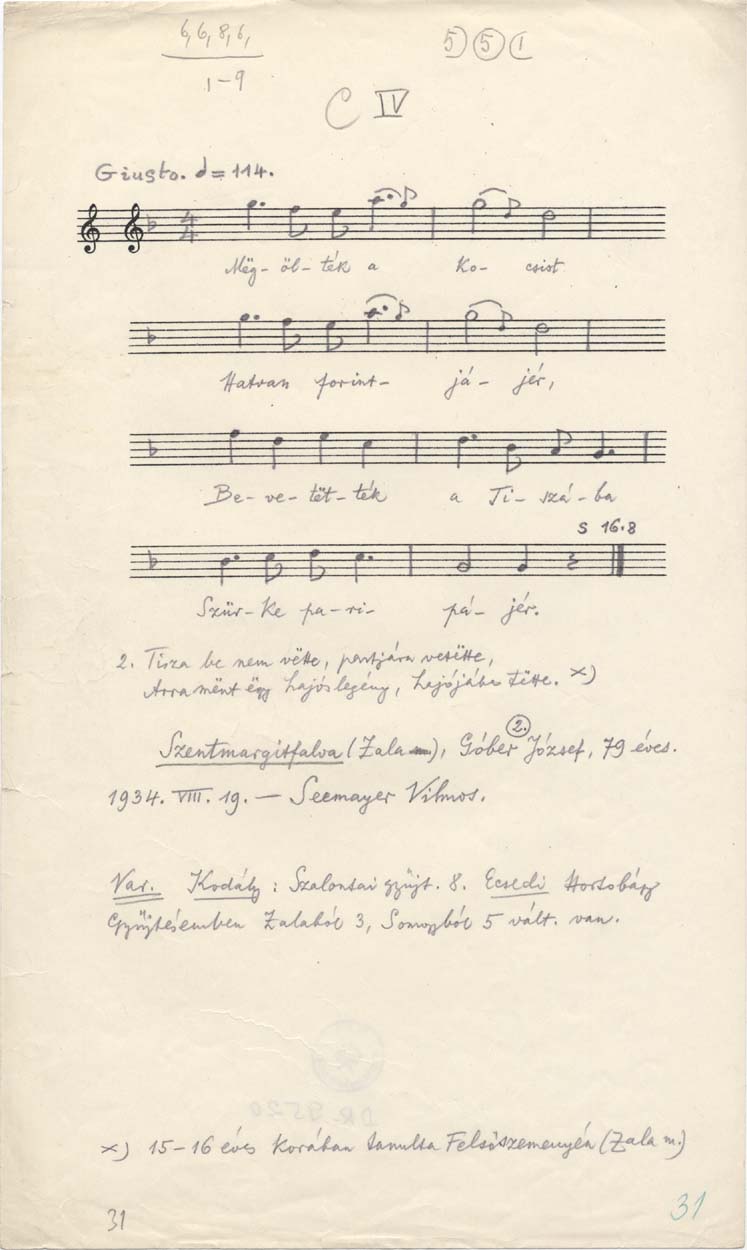 6, 6, 8, 6,
1-9
5 5 1
C IV
Giusto. = 114.
4
4
Mëg- öl- ték a ko- csist
Hatvan forint- já- jér,
Be- ve- tët- ték a Ti- szá- ba
S 16.8
Szür- ke pa- ri- pá- jér.
2. Tisza be nem vëtte, partjára vetëtte,
Arra mënt ëgy hajós legény, hajójába tëtte. x)
2.
Szentmargitfalva (Zala m), Góber József, 79 éves.
1934. VIII. 19. — Seemayer Vilmos.
Var. Kodály: Szalontai gyűjt. 8. Ecsedi Hortobágy
Gyűjtésemben Zalából 3, Somogyból 5 vált. van.
DR-9520
x) 15-16 éves korában tanulta Felsőszemenyén (Zala m.)
31
31